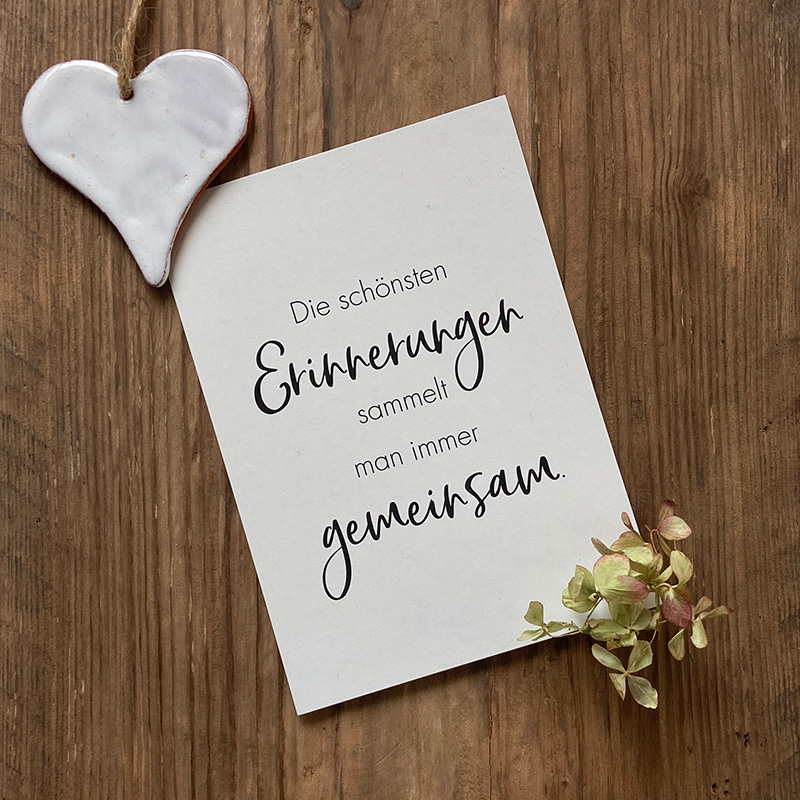 Die schönsten
Erinnerungen
sammelt
man immer
gemeinsam.